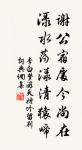 谢公宿处今尚在
渌水荡漾清猿啼
李白梦游天姥吟留别
词典词集